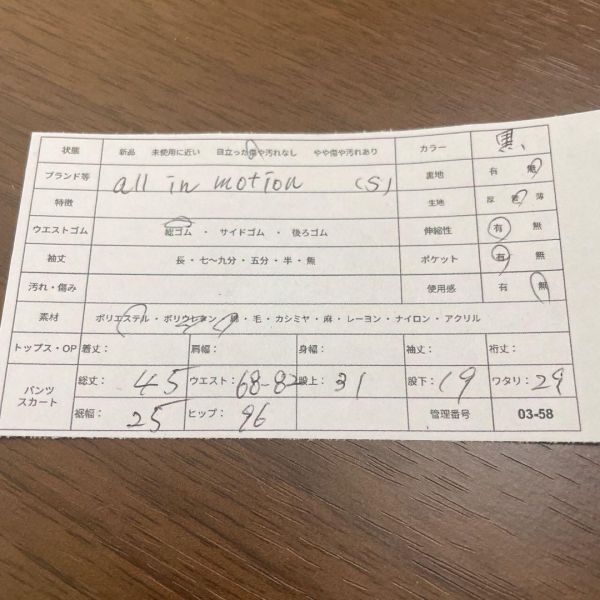 状態 新品 未使用に近い 目立った傷や汚れなし やや傷や汚れあり カラー 黒、
ブランド等 all in motion (S) 裏地 有 無
特徴 生地 厚 普 薄
ウエストゴム 総ゴム ・ サイドゴム ・ 後ろゴム 伸縮性 有 無
袖丈 長・七〜九分・五分・半・無 ポケット 有 無
汚れ・傷み 使用感 有 無
素材 ポリエステル・ポリウレタン・綿・毛・カシミヤ・麻・レーヨン・ナイロン・アクリル
トップス・OP 着丈： 肩幅： 身幅： 袖丈： 裄丈：
パンツ スカート 総丈： 45 ウエスト：68-82 股上：31 股下：19 ワタリ：29
裾幅： 25 ヒップ： 96 管理番号 03-58